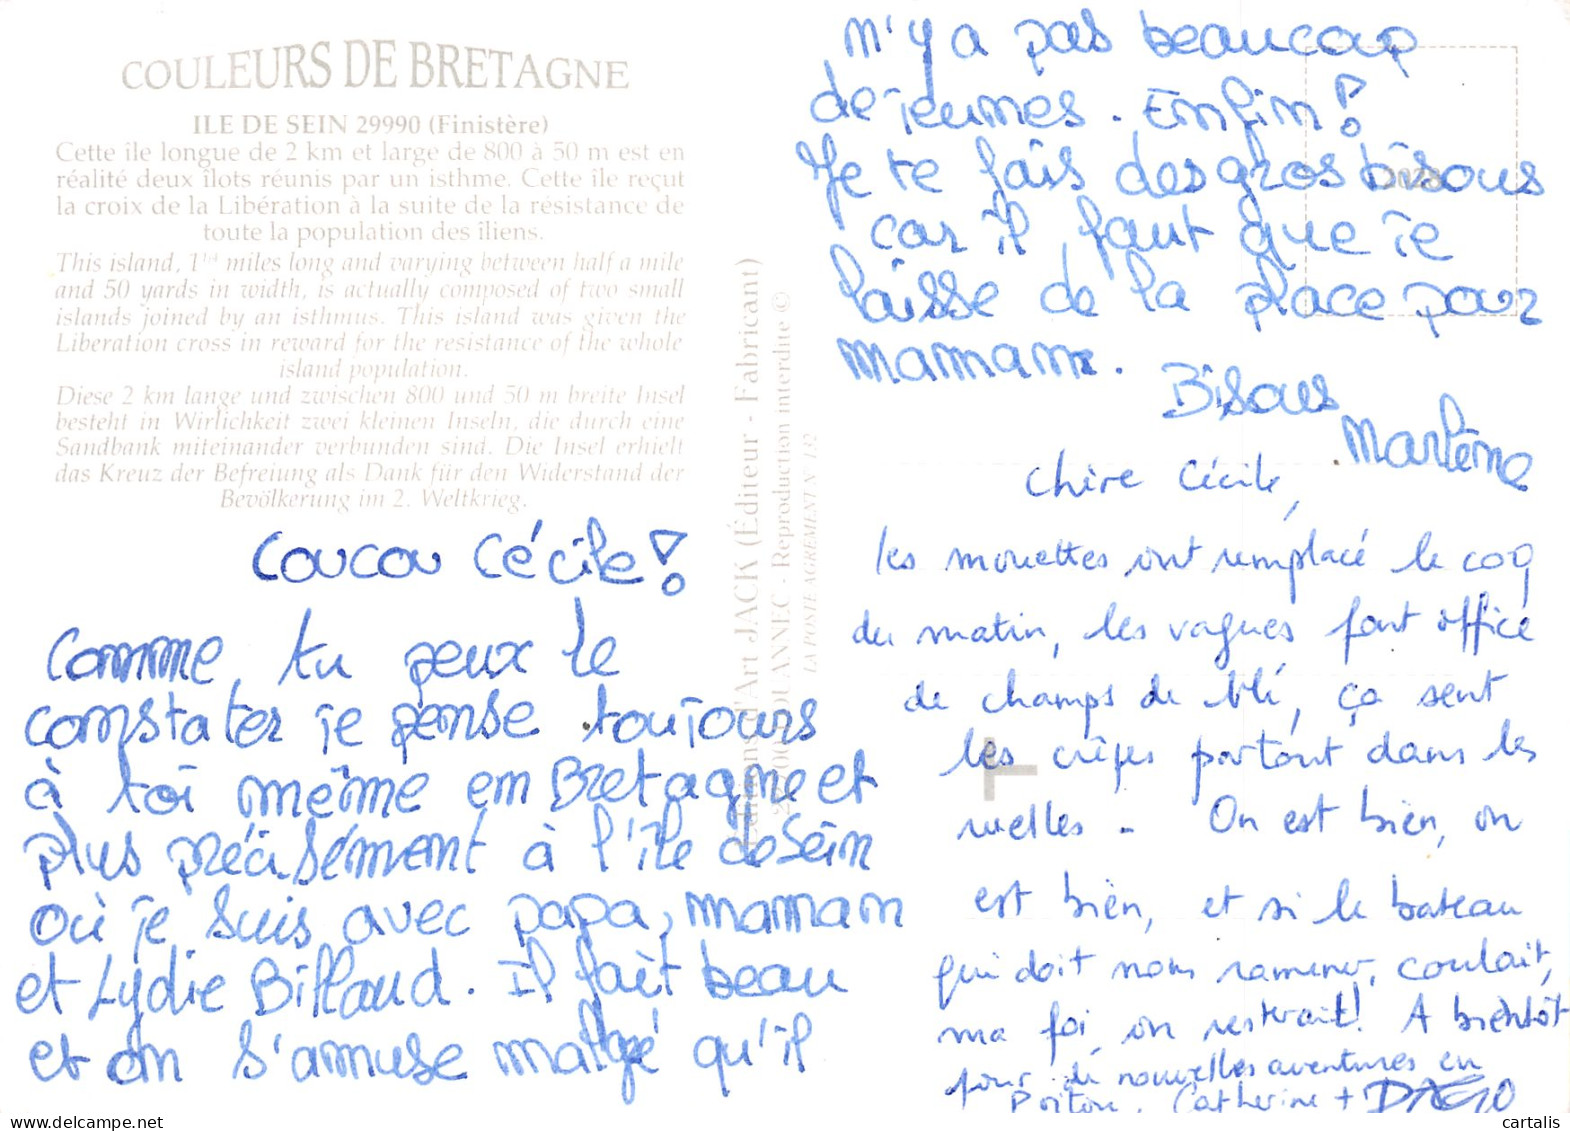 COULEURS DE BRETAGNE
ILE DE SEIN 29990 (Finistère)
Cette île longue de 2 km et large de 800 à 50 m est en
réalité deux îlots réunis par un isthme. Cette île reçut
la croix de la Libération à la suite de la résistance de
toute la population des îliens.
This island, 1 1/4 miles long and varying between half a mile
and 50 yards in width, is actually composed of two small
islands joined by an isthmus. This island was given the
Liberation cross in reward for the resistance of the whole
island population.
Diese 2 km lange und zwischen 800 und 50 m breite Insel
besteht in Wirlichkeit zwei kleinen Inseln, die durch eine
Sandbank miteinander verbunden sind. Die Insel erhielt
das Kreuz der Befreiung als Dank für den Widerstand der
Bevölkerung im 2. Weltkrieg.
Coucou Cécile !
Comme tu peux le
constater je pense toujours
à toi même en Bretagne et
plus précisément à l'île de Sein
où je suis avec papa, maman
et Lydie Billaud. Il fait beau
et on s'amuse malgré qu'il
Éditions d'Art JACK (Éditeur - Fabricant)
LOUANNEC - Reproduction interdite ©
LA POSTE AGREMENT N 1/2
n'y a pas beaucoup
de jeunes. Enfin !
Je te fais des gros bisous
car il faut que je
laisse de la place pour
maman.
Bisous
Marlène
Chère Cécile,
les mouettes ont remplacé le coq
du matin, les vagues font office
de champs de blé, ça sent
les crêpes partout dans les
ruelles. On est bien, on
est bien, et si le bateau
qui doit nous ramener, coulait,
ma foi, on resterait! A bientôt
pour de nouvelles aventures en
Poitou. Catherine + DAGO
cartalis